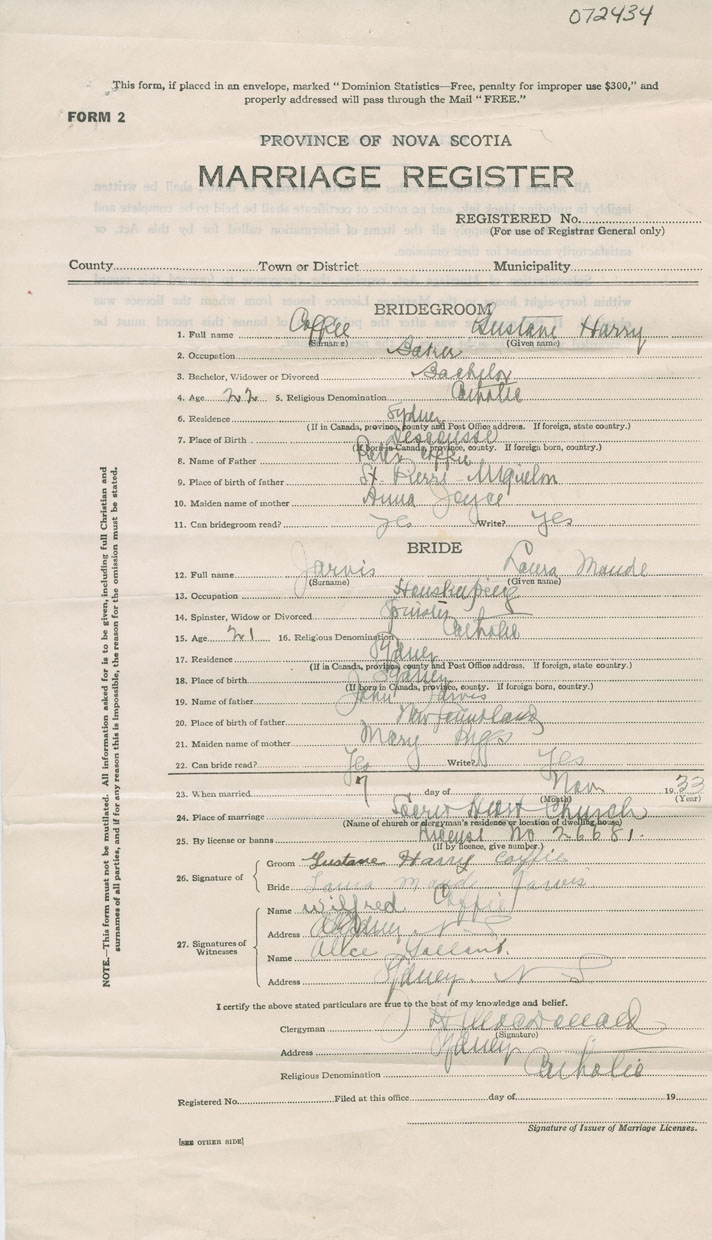 072434
This form, if placed in an envelope, marked "Dominion Statistics—Free, penalty for improper use $300," and
properly addressed will pass through the Mail "FREE."
FORM 2
PROVINCE OF NOVA SCOTIA
MARRIAGE REGISTER
REGISTERED No.
(For use of Registrar General only)
County Town or District Municipality
BRIDEGROOM
1. Full name Coffie Gustane Harry
(Surname) (Given name)
2. Occupation Baker
3. Bachelor, Widower or Divorced Bachelor
4. Age 22 5. Religious Denomination Catholic
6. Residence Sydney
(If in Canada, province, county and Post Office address. If foreign, state country.)
7. Place of Birth Descousse
(If born in Canada, province, county. If foreign born, country.)
8. Name of Father Peter Coffie
9. Place of birth of father St. Pierre - Miquelon
10. Maiden name of mother Anna Joyce
11. Can bridegroom read? yes Write? yes
BRIDE
12. Full name Jarvis Laura Maude
(Surname) (Given name)
13. Occupation Housekeeping
14. Spinster, Widow or Divorced Spinster
15. Age 21 16. Religious Denomination Catholic
17. Residence Sydney
(If in Canada, province county and Post Office address. If foreign, state country.)
18. Place of birth Sydney
(If born in Canada, province, county. If foreign born, country.)
19. Name of father John Jarvis
20. Place of birth of father Newfoundland
21. Maiden name of mother Mary
22. Can bride read? Yes Write? Yes
23. When married 7 day of Nov 1933
(Month) (Year)
24. Place of marriage Sacred Heart Church
(Name of church or clergyman's residence or location of dwelling house)
25. By license or banns License No 26681.
(If by licence, give number.)
26. Signature of
Groom Gustane Harry Coffie
Bride Laura Maud Jarvis
27. Signatures of Witnesses
Name Wilfred Coffie
Address Sydney N S
Name Alice Gallant.
Address Sydney. N S
I certify the above stated particulars are true to the best of my knowledge and belief.
Clergyman MacDonald
(Signature)
Address Sydney
Religious Denomination Catholic
Registered No. Filed at this office day of 19
Signature of Issuer of Marriage Licenses.
[SEE OTHER SIDE]
NOTE.—This form must not be mutilated. All information asked for is to be given, including full Christian and
surnames of all parties, and if for any reason this is impossible, the reason for the omission must be stated.